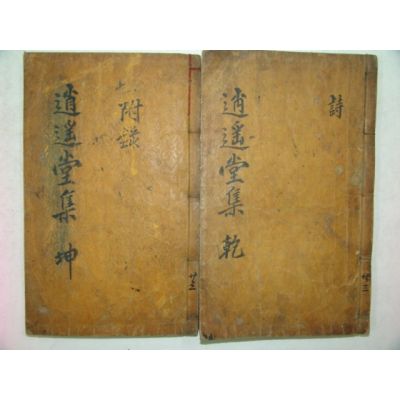 詩
逍遙堂集 乾
附錄
逍遙堂集 坤